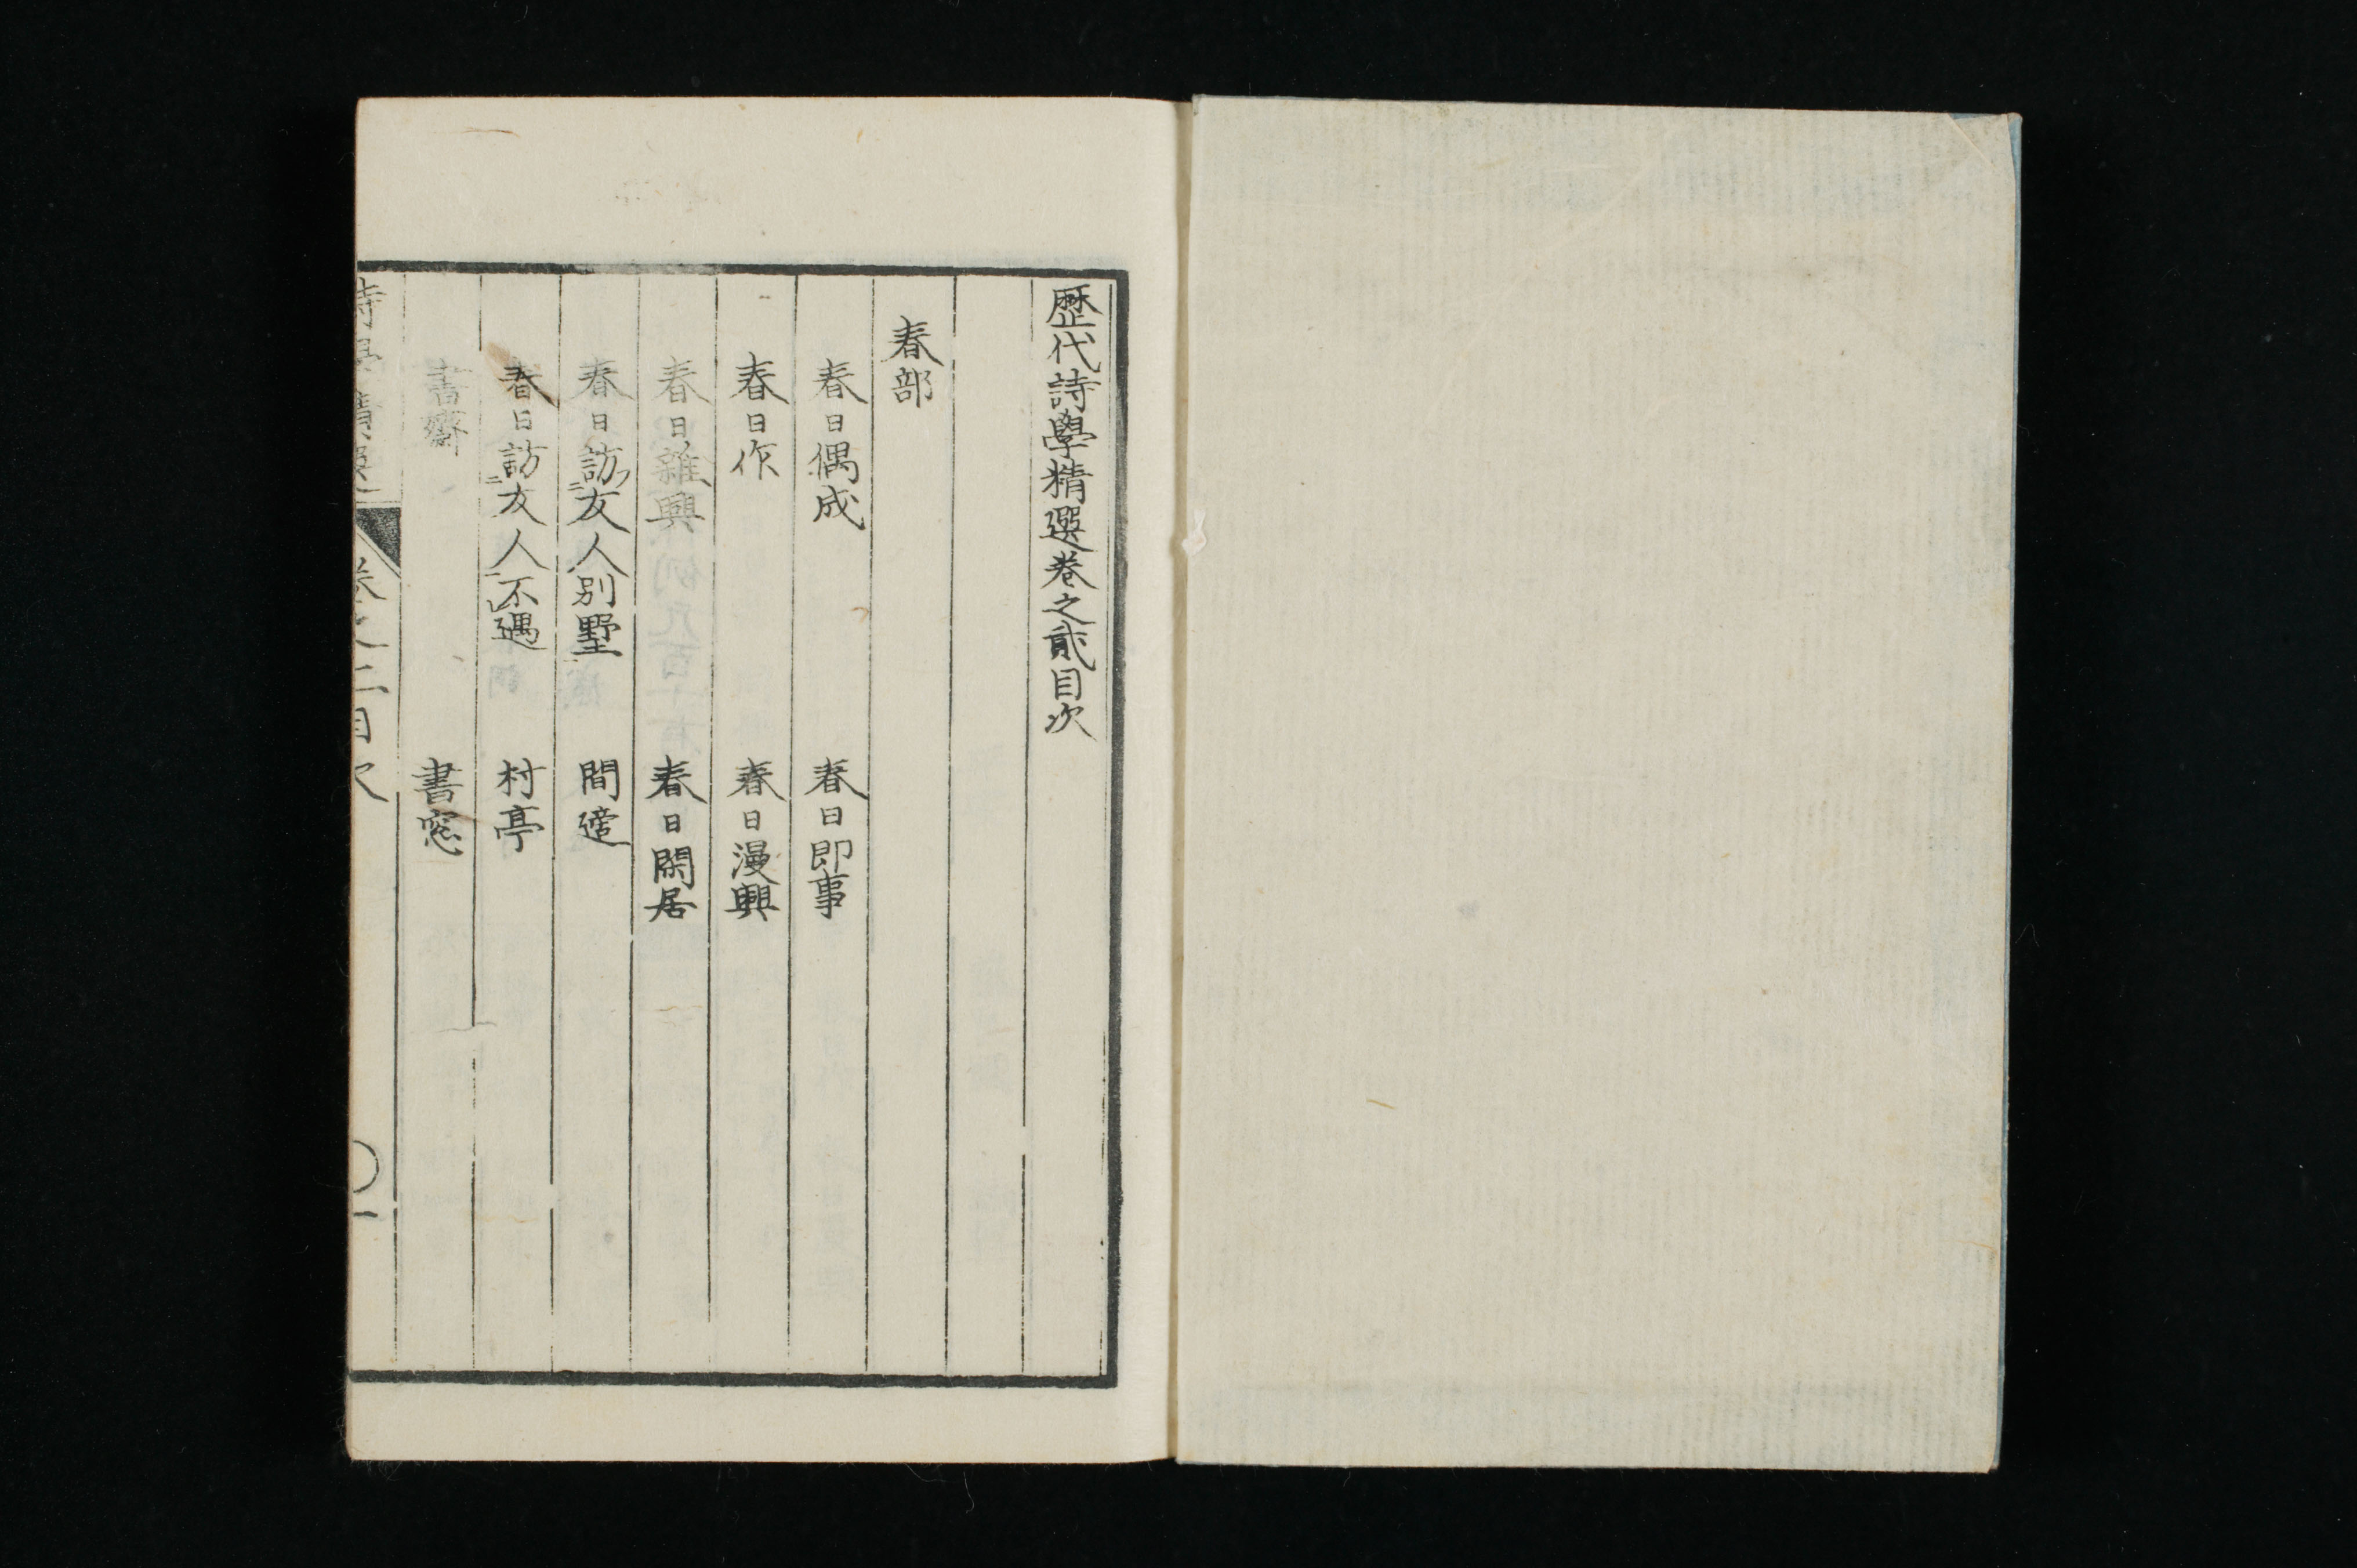 歴代詩學精選巻之貳目次
春部
春日偶成　春日即事
春日作　春日漫興
春日雜興　春日閑居
春日訪友人別墅　間遊
春日訪友人不遇　村亭
書齋　書窓
詩學精選　卷之二目次　〇一